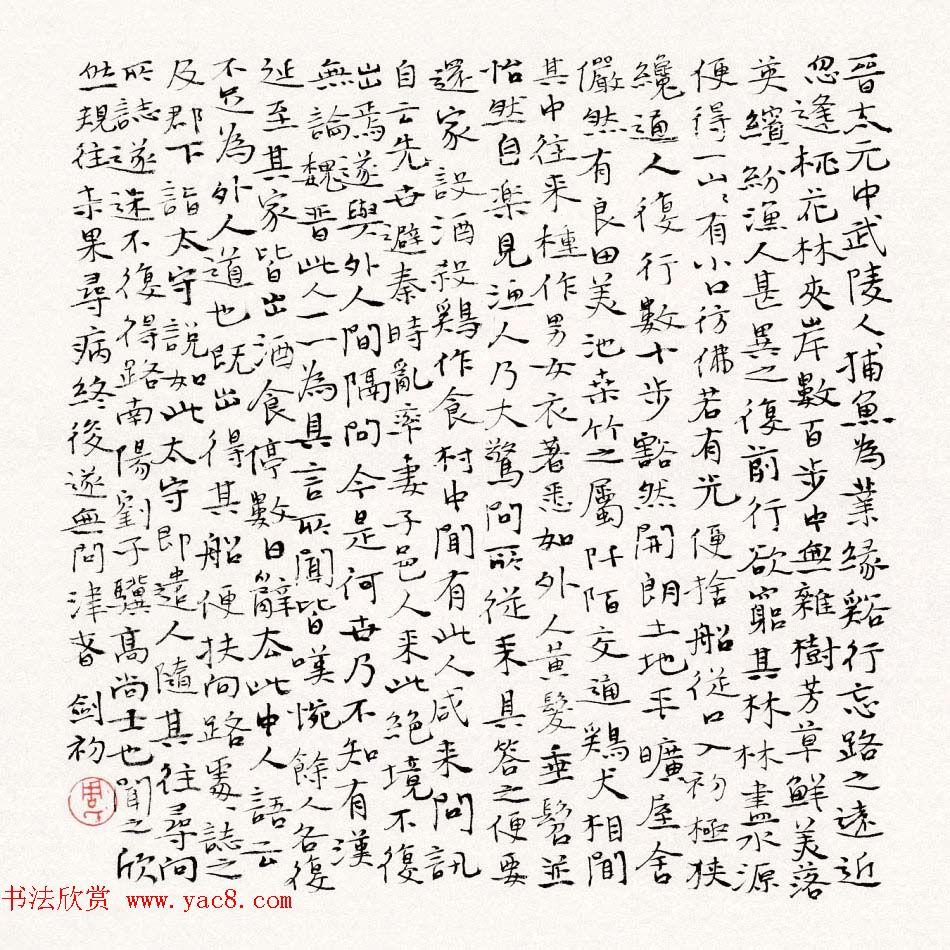 晉太元中武陵人捕魚為業緣谿行忘路之遠近
忽逢桃花林夾岸數百步中無雜樹芳草鮮美落
英繽紛漁人甚異之復前行欲窮其林林盡水源
便得一山〻有小口彷彿若有光便捨船從口入初極狹
纔通人復行數十步豁然開朗土地平曠屋舍
儼然有良田美池桑竹之屬阡陌交通鷄犬相聞
其中往来種作男女衣著悉如外人黃髮垂髫並
怡然自樂見漁人乃大驚問所從来具答之便要
還家設酒殺鷄作食村中聞有此人咸来問訊
自云先世避秦時亂率妻子邑人来此絕境不復
出焉遂與外人間隔問今是何世乃不知有漢
無論魏晉此人一一為具言所聞皆嘆惋餘人各復
延至其家皆出酒食停數日辭去此中人語云
不足為外人道也既出得其船便扶向路處〻誌之
及郡下詣太守說如此太守即遣人隨其往尋向
所誌遂迷不復得路南陽劉子驥高尚士也聞之欣
然規往未果尋病終後遂無問津者 劍初
书法欣赏 www.yac8.com